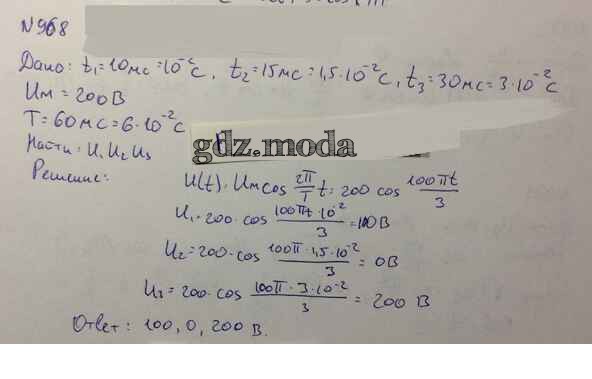 N 968
Дано: t₁ = 10мс = 10⁻²с, t₂ = 15мс = 1,5·10⁻²с, t₃ = 30мс = 3·10⁻²с
Uм = 200В
T = 60мс = 6·10⁻²с
Найти: U₁ U₂ U₃
gdz.moda
Решение: U(t) = Uм cos 2π/T t = 200 cos 100πt/3
U₁ = 200·cos 100πt·10⁻²/3 = 100В
U₂ = 200·cos 100π·1,5·10⁻²/3 = 0В
U₃ = 200·cos 100π·3·10⁻²/3 = 200 В
Ответ: 100, 0, 200 В.